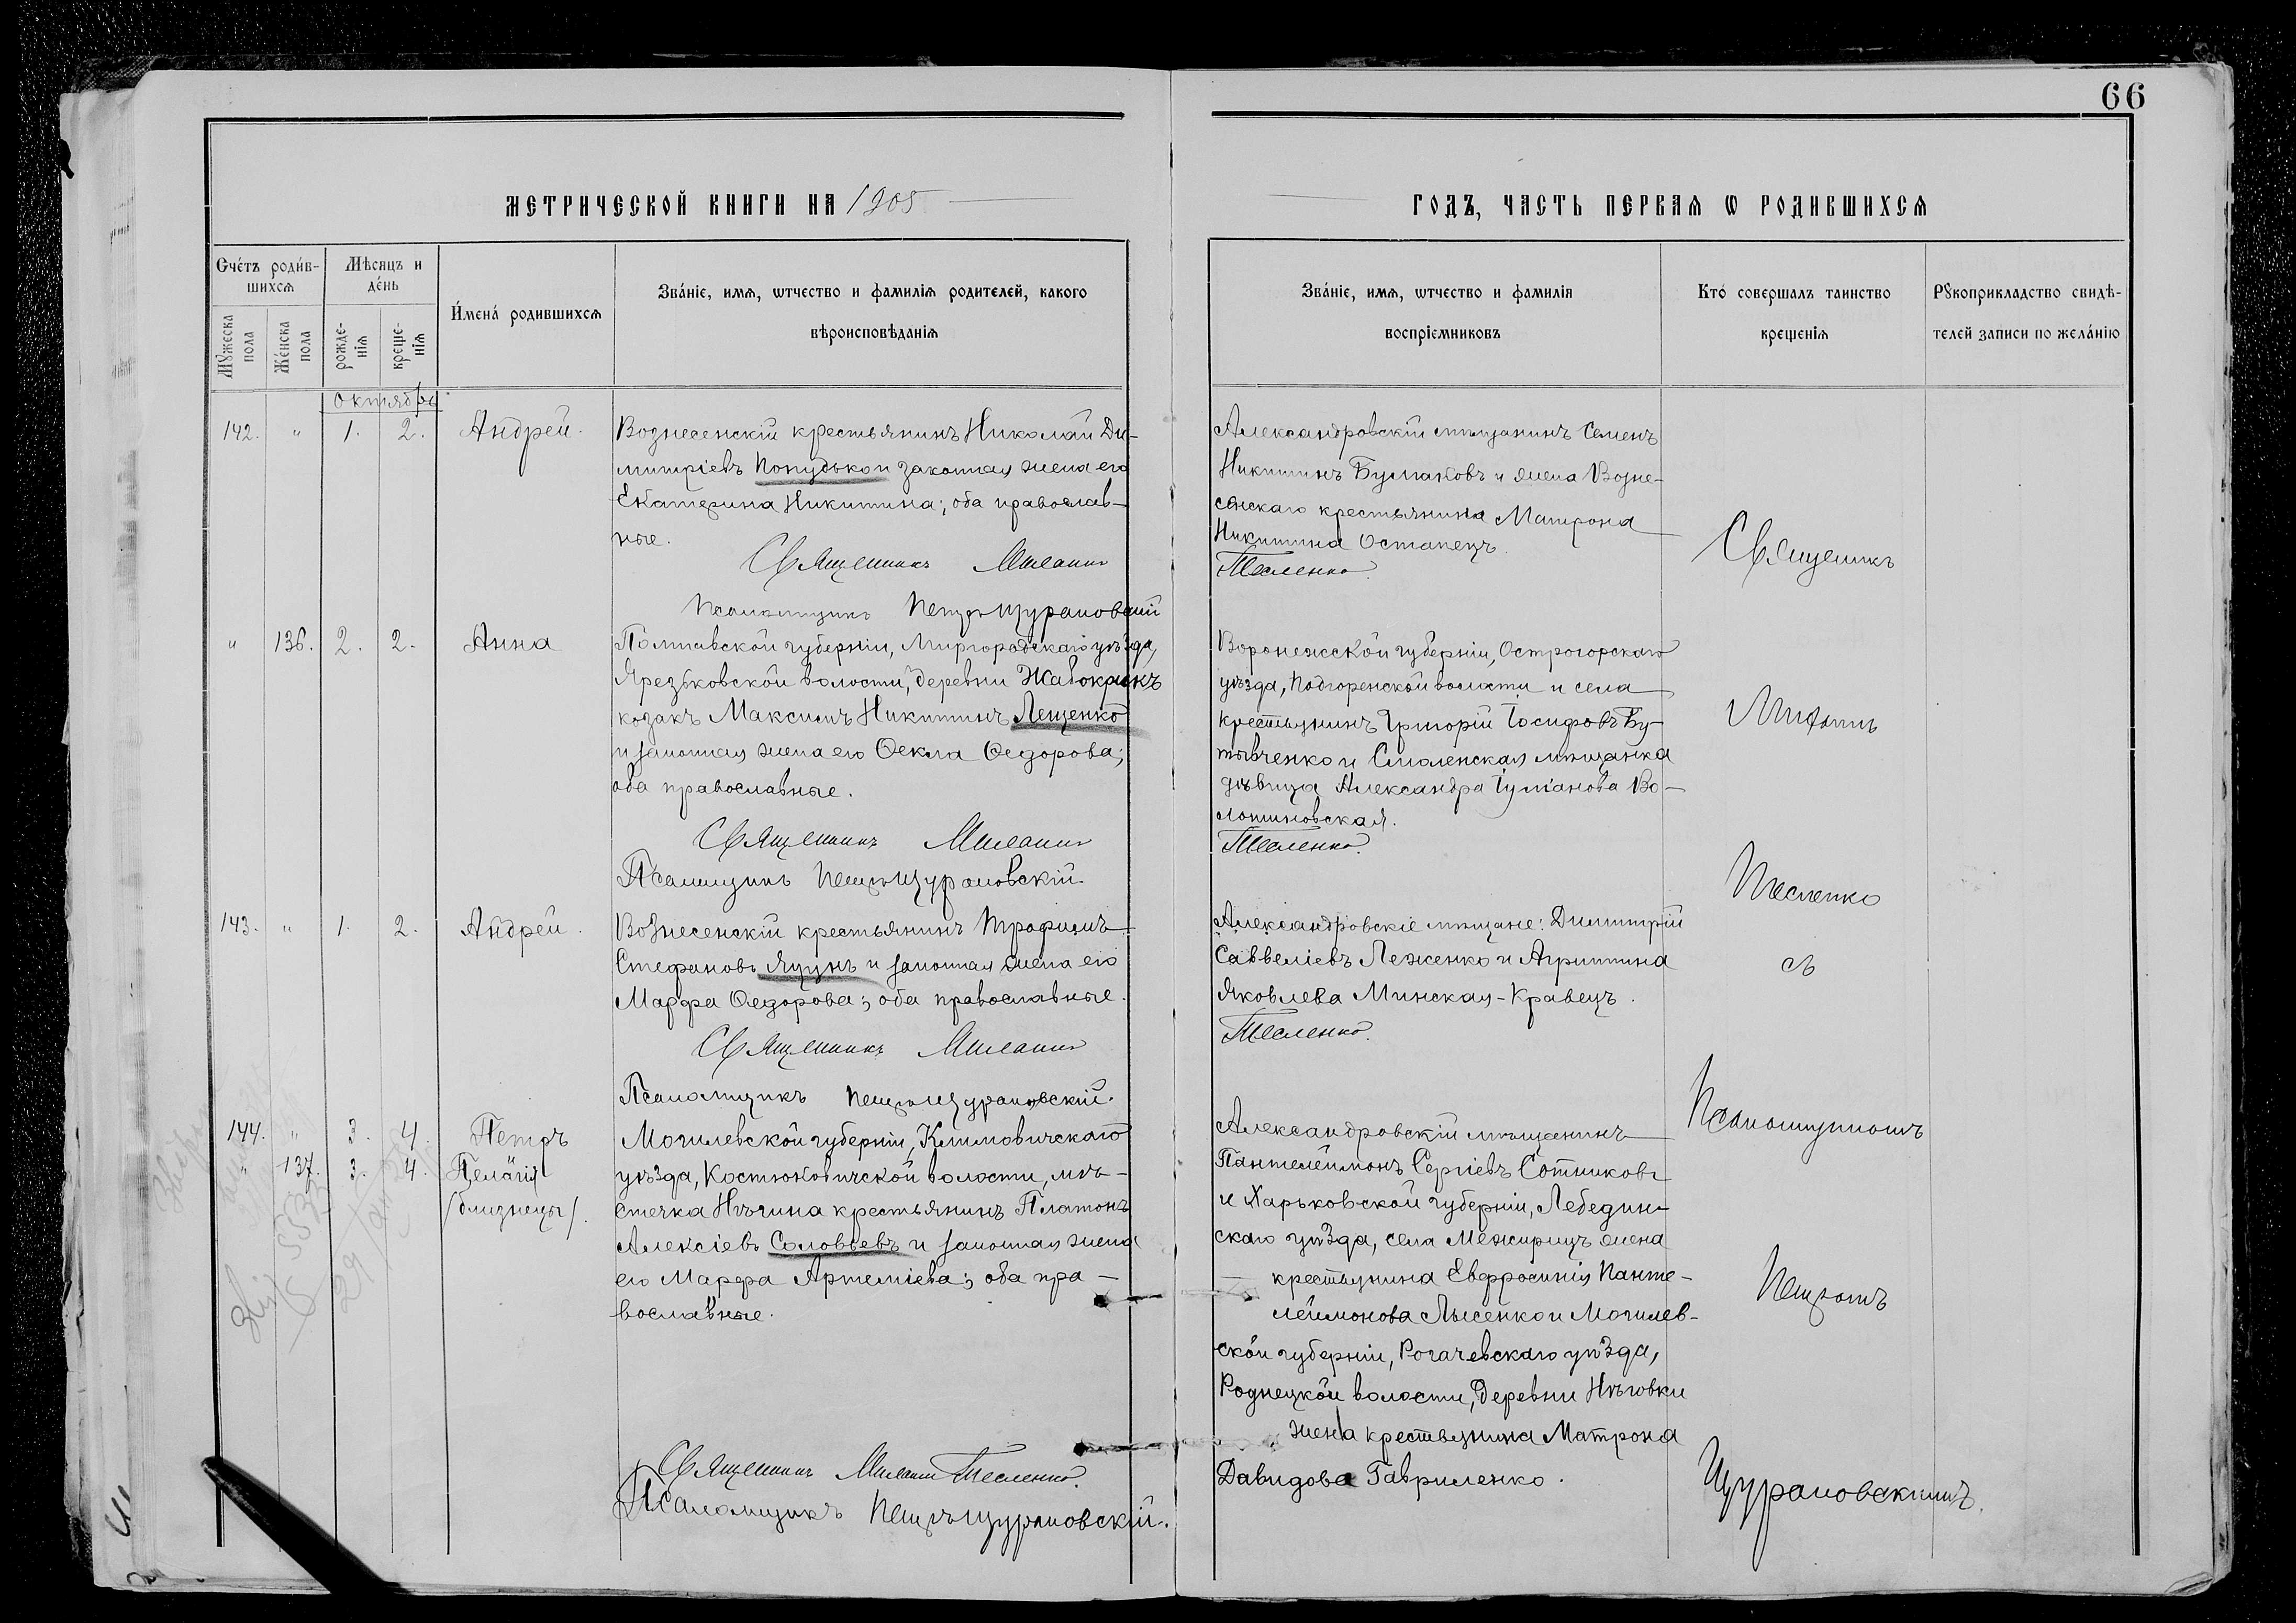 66
МЕТРИЧЕСКОЙ КНИГИ НА 1905
ГОДЪ, ЧАСТЬ ПЕРВАЯ Ѡ РОДИВШИХСЯ
Счетъ родив-
шихся
Мужеска пола
Женска пола
Мѣсяцъ и
день
рожде-
нія
креще-
нія
Имена родившихся
Званіе, имя, ѡтчество и фамилія родителей, какого
вѣроисповѣданія
Званіе, имя, ѡтчество и фамилія
воспріемниковъ
Кто совершалъ таинство
крещенія
Рукоприкладство свидѣ-
телей записи по желанію
Октябрь
142. " 1. 2. Андрей.
Вознесенскій крестьянинъ Николай Ди-
митріевъ и законная жена его
Екатерина Никитина; оба православ-
ные.
Священникъ
Псаломщикъ Петръ Щурановскій
Александровскій мѣщанинъ Семенъ
Никитинъ и жена Возне-
сенскаго крестьянина Матрона
Никитина Остапецъ.
Тесленко.
" 136. 2. 2. Анна
Полтавской губерніи, Миргородскаго уѣзда,
Яреськовской волости, деревни
козакъ Максимъ Никитинъ Лещенко
и законная жена его Ѳекла Ѳедорова;
оба православные.
Священникъ
Псаломщикъ Петръ Щурановскій
Воронежской губерніи, Острогорскаго
уѣзда, Подгоренской волости и села
крестьянинъ Григорій Іосифовъ Бу-
тывченко и Смоленская мѣщанка
дѣвица Александра Во-
лотиновская.
Тесленко.
143. " 1. 2. Андрей.
Вознесенскій крестьянинъ Трофимъ
Стефановъ Яцунъ и законная жена его
Марфа Ѳедорова; оба православные.
Священникъ
Псаломщикъ Петръ Щурановскій.
Александровскіе мѣщане: Димитрій
Саввеліевъ Леженко и Агриппина
Яковлева Минская-Кравецъ.
Тесленко.
144. " 3. 4. Петръ
" 137. 3. 4. Пелагія
/близнецы/.
Могилевской губерніи, Климовичскаго
уѣзда, Костюковичской волости, мѣ-
стечка крестьянинъ Платонъ
Алексіевъ Соловьевъ и законная жена
его Марфа Артеміева; оба пра-
вославные.
Священникъ Тесленко.
Псаломщикъ Петръ Щурановскій.
Александровскій мѣщанинъ
Пантелеймонъ Сергіевъ Сотниковъ
и Харьковской губерніи, Лебедин-
скаго уѣзда, села Межиричъ жена
крестьянина Евфросинія Панте-
леймонова Лысенко и Могилев-
ской губерніи, Рогачевскаго уѣзда,
волости, деревни
жена крестьянина Матрона
Давидова Гавриленко.
Священникъ
Тесленко
съ
Псаломщикомъ
Петромъ
Щурановскимъ.